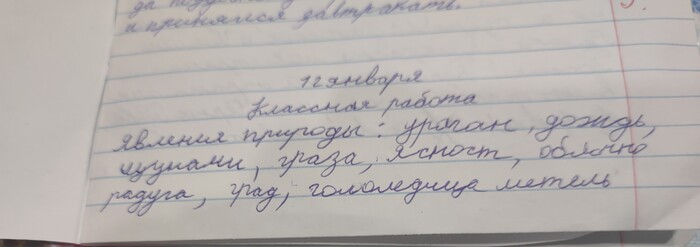 и принялся завтракать.
12 января
Классная работа
явления природы: ураган, дождь,
цунами, граза, ясност, облочно
радуга, град, гололедица метель